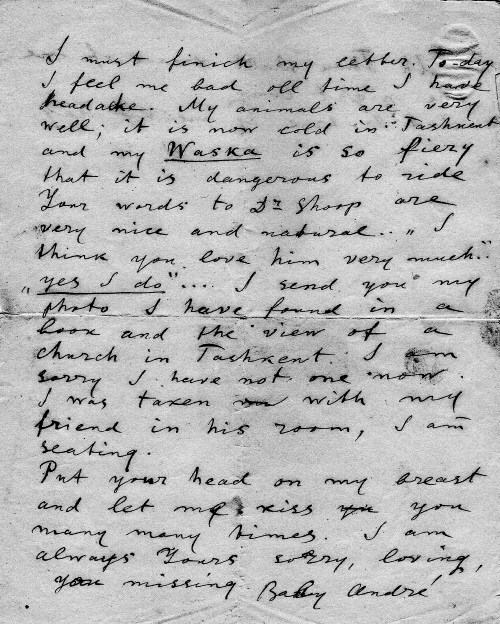 I must finich my letter. To-day
I feel me bad all time I have
headake. My animals are very
well; it is now cold in Tashkent
and my Waska is so fiery
that it is dangerous to ride
Your words to Dr Shoop are
very nice and natural.. „ I
think you love him very much".
„yes I do".... I send you my
photo I have found in a
book and the view of a
church in Tashkent. I am
sorry I have not one now.
I was taken with my
friend in his room, I am
seating.
Put your head on my breast
and let me kiss you
many many times. I am
always Yours sorry, loving,
you missing Baby André